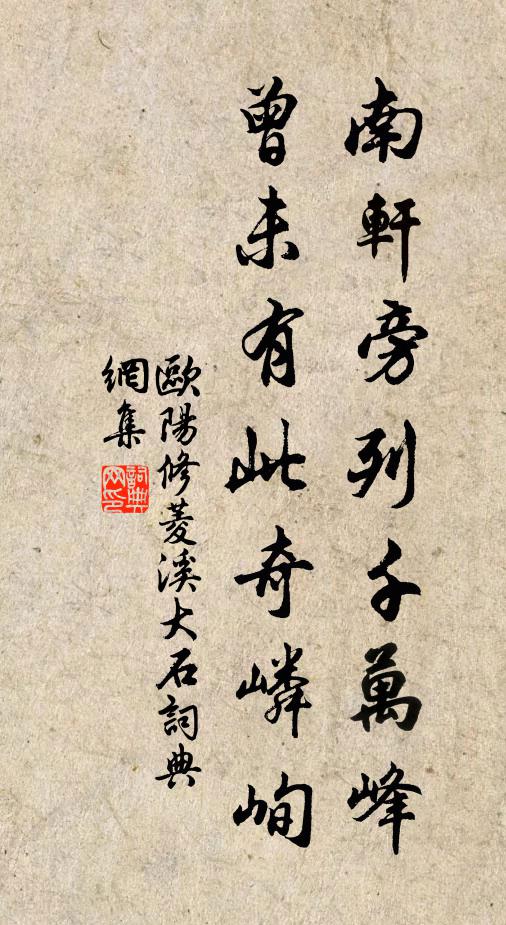 南軒旁列千萬峰
曾未有此奇嶙峋
歐陽修菱溪大石詞典
網集
詞典
网印